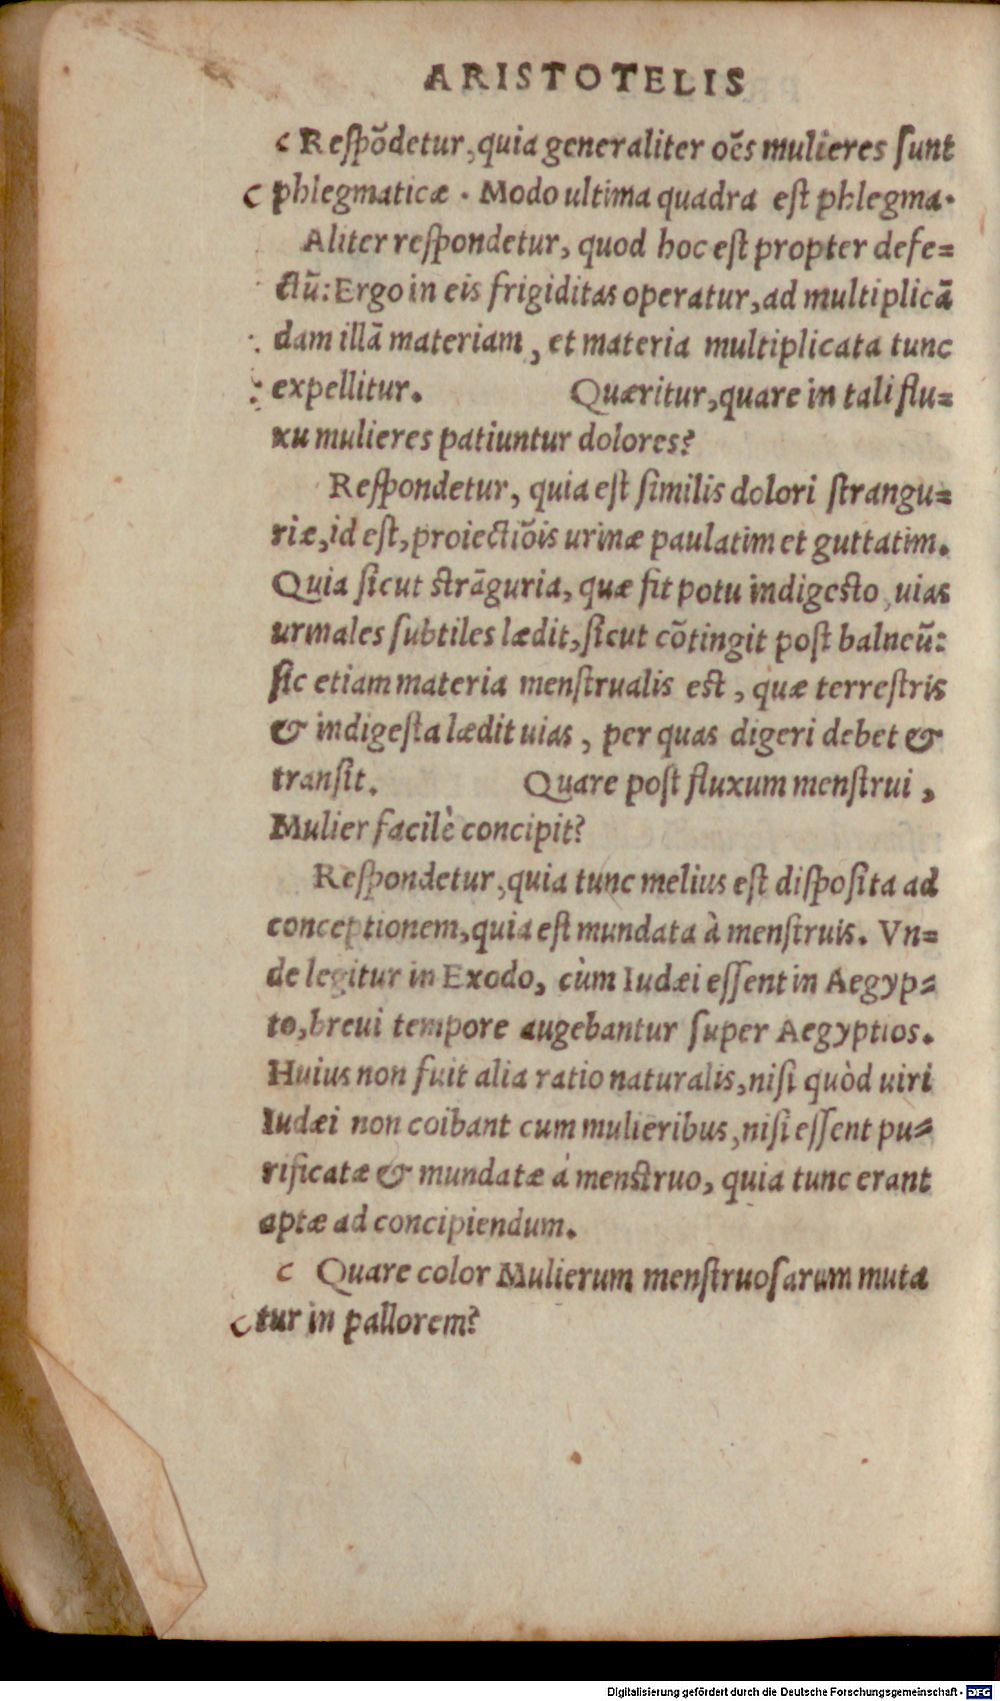 ARISTOTELIS
c Respõdetur, quia generaliter oẽs mulieres sunt
c phlegmaticæ. Modo ultima quadra est phlegma.
Aliter respondetur, quod hoc est propter defe=
ctũ: Ergo in eis frigiditas operatur, ad multiplicã
dam illã materiam, et materia multiplicata tunc
expellitur. Quæritur, quare in tali flu=
xu mulieres patiuntur dolores?
Respondetur, quia est similis dolori strangu=
riæ, id est, proiectiõis urinæ paulatim et guttatim.
Quia sicut strãguria, quæ fit potu indigesto, uias
urinales subtiles lædit, sicut cõtingit post balneũ:
sic etiam materia menstrualis est, quæ terrestris
& indigesta lædit uias, per quas digeri debet &
transit. Quare post fluxum menstrui,
Mulier facilè concipit?
Respondetur, quia tunc melius est disposita ad
conceptionem, quia est mundata à menstruis. Vn=
de legitur in Exodo, cùm Iudæi essent in Aegyp=
to, breui tempore augebantur super Aegyptios.
Huius non fuit alia ratio naturalis, nisi quòd uiri
Iudæi non coibant cum mulieribus, nisi essent pu=
rificatæ & mundatæ à menstruo, quia tunc erant
aptæ ad concipiendum.
c Quare color Mulierum menstruosarum muta
c tur in pallorem?
Digitalisierung gefördert durch die Deutsche Forschungsgemeinschaft - DFG